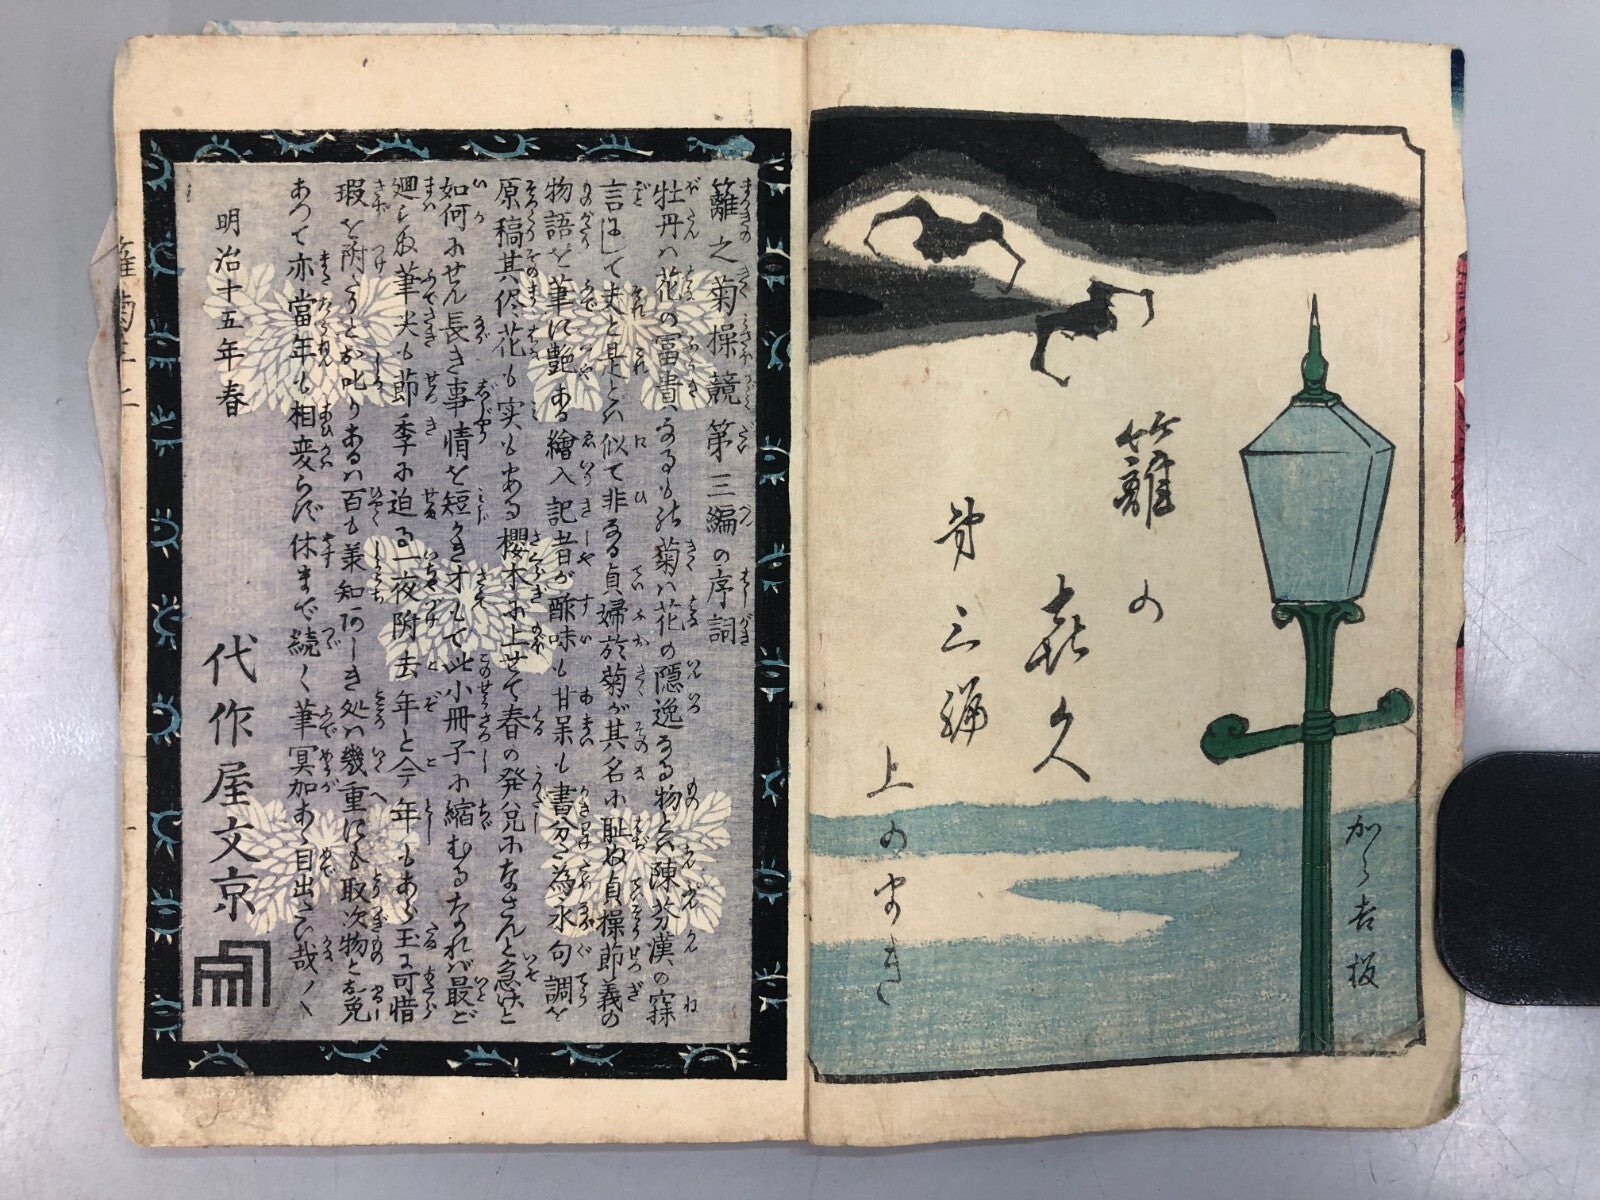 籬の
喜久
第三編
上のまき
加〻吉板
籬之菊操競第三編の序詞
牡丹ハ花の富貴なるもの菊ハ花の隠逸なる物とハ陳芬漢の寐
言にして夫と是とハ似て非なる貞婦於菊が其名に恥ぬ貞操節義の
物語を筆に艶ある繪入記者が酸味も甘味も書分て為永句調を
原稿其侭花も実もある櫻木に上せて春の発兌になさんと急げど
如何にせん長き事情を短き才もて此小冊子に縮むるなれバ最ど
廻らぬ筆尖も節季に迫る一夜附去年と今年もあら玉に可惜
瑕を附たりとお叱りあるハ百も承知悪しき処ハ幾重にも取次物とお免
あつて亦當年も相変らず休まで続く筆冥加あゝ目出たい哉〳〵
明治十五年春
代作屋文京
籬菊三
二